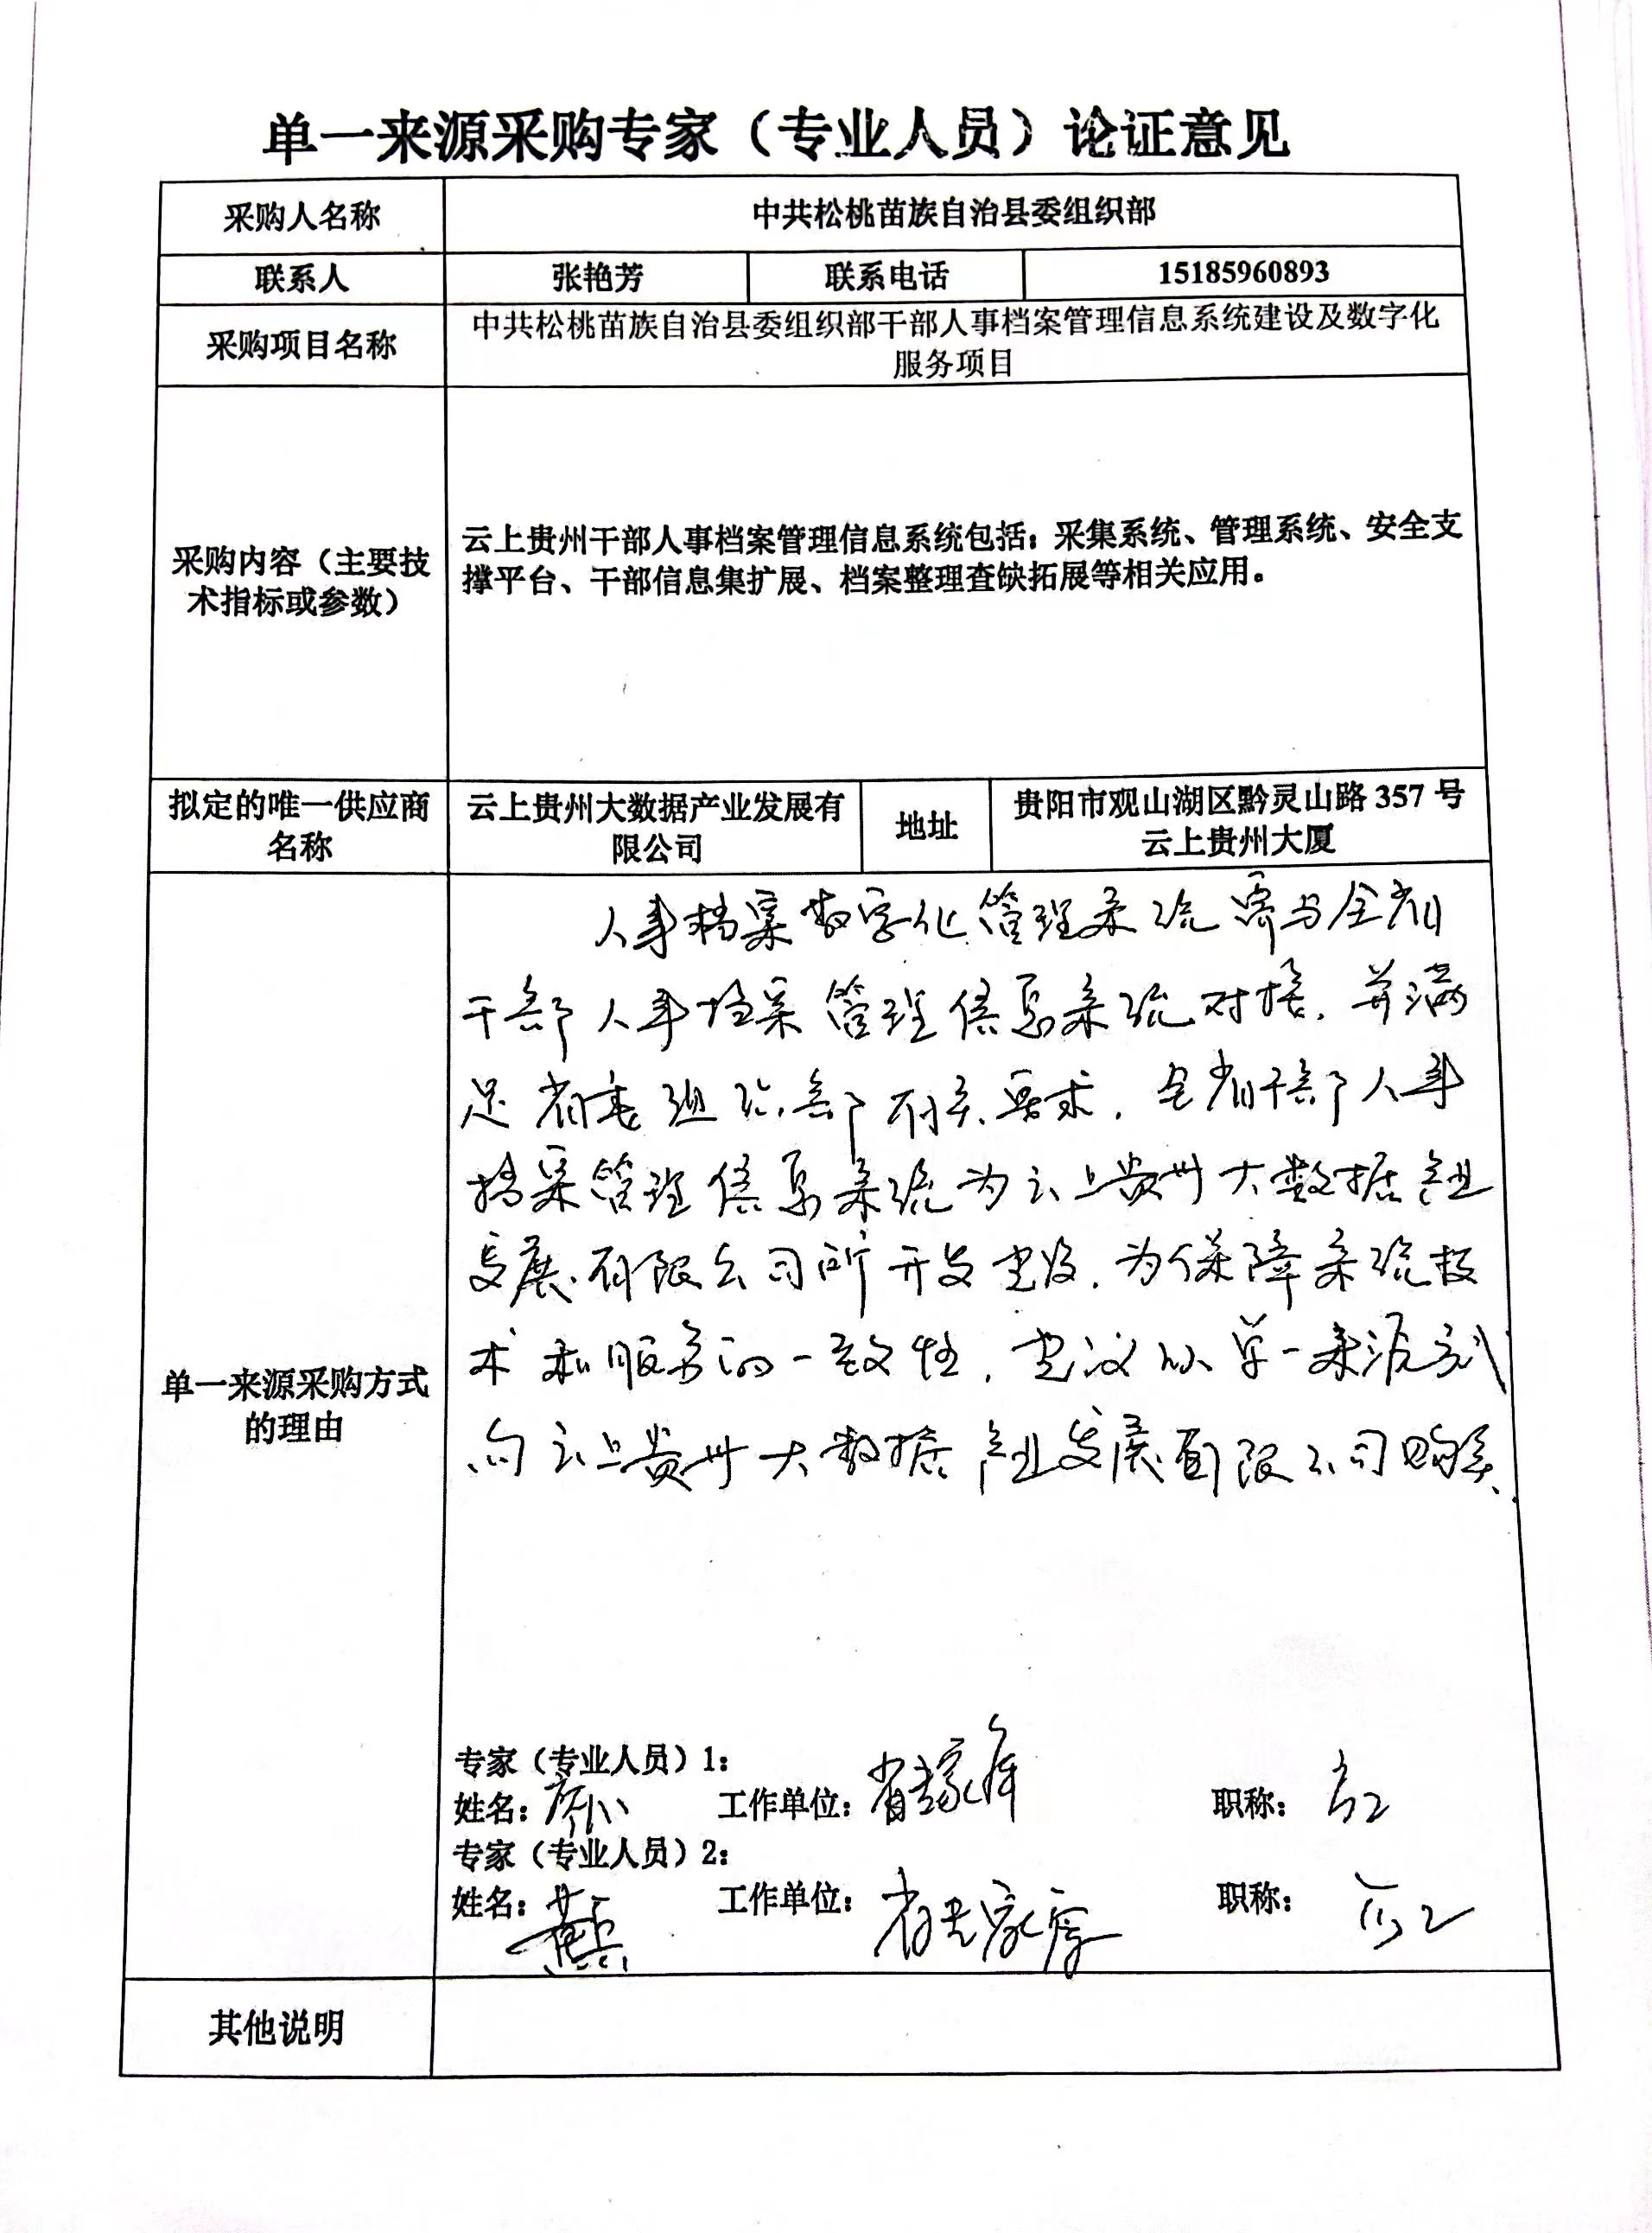 单一来源采购专家（专业人员）论证意见
采购人名称
中共松桃苗族自治县委组织部
联系人
张艳芳
联系电话
15185960893
采购项目名称
中共松桃苗族自治县委组织部干部人事档案管理信息系统建设及数字化
服务项目
采购内容（主要技
术指标或参数）
云上贵州干部人事档案管理信息系统包括：采集系统、管理系统、安全支
撑平台、干部信息集扩展、档案整理查缺拓展等相关应用。
拟定的唯一供应商
名称
云上贵州大数据产业发展有
限公司
地址
贵阳市观山湖区黔灵山路 357 号
云上贵州大厦
单一来源采购方式
的理由
人事档案数字化管理系统需与全省
干部人事档案管理信息系统对接，并满
足省委组织部有关要求，全省干部人事
档案管理信息系统为云上贵州大数据产业
发展有限公司所开发建设，为保障系统技
术和服务的一致性，建议以单一来源方式
向云上贵州大数据产业发展有限公司购买.
专家（专业人员）1：
姓名：
工作单位：省专家库
职称：高工
专家（专业人员）2：
姓名：
工作单位：省专家库
职称：高工
其他说明